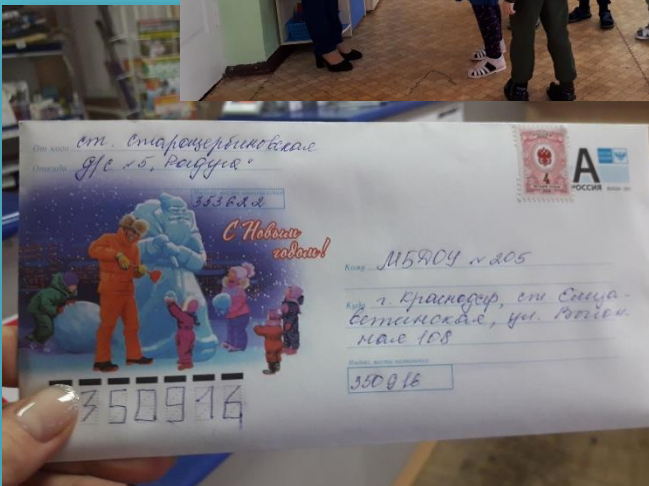 От кого ст. Старощербиновская
Откуда д/с №5 „Радуга“
353622
С Новым
годом!
4
А
РОССИЯ
Кому МБДОУ №205
Куда г. Краснодар, ст. Елиза-
ветинская, ул.
ная 108
Индекс места назначения
350916
350916